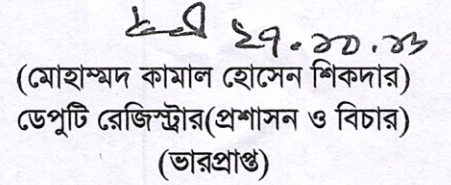 ২৭.১০.২৩
(মোহাম্মদ কামাল হোসেন শিকদার)
ডেপুটি রেজিস্ট্রার(প্রশাসন ও বিচার)
(ভারপ্রাপ্ত)